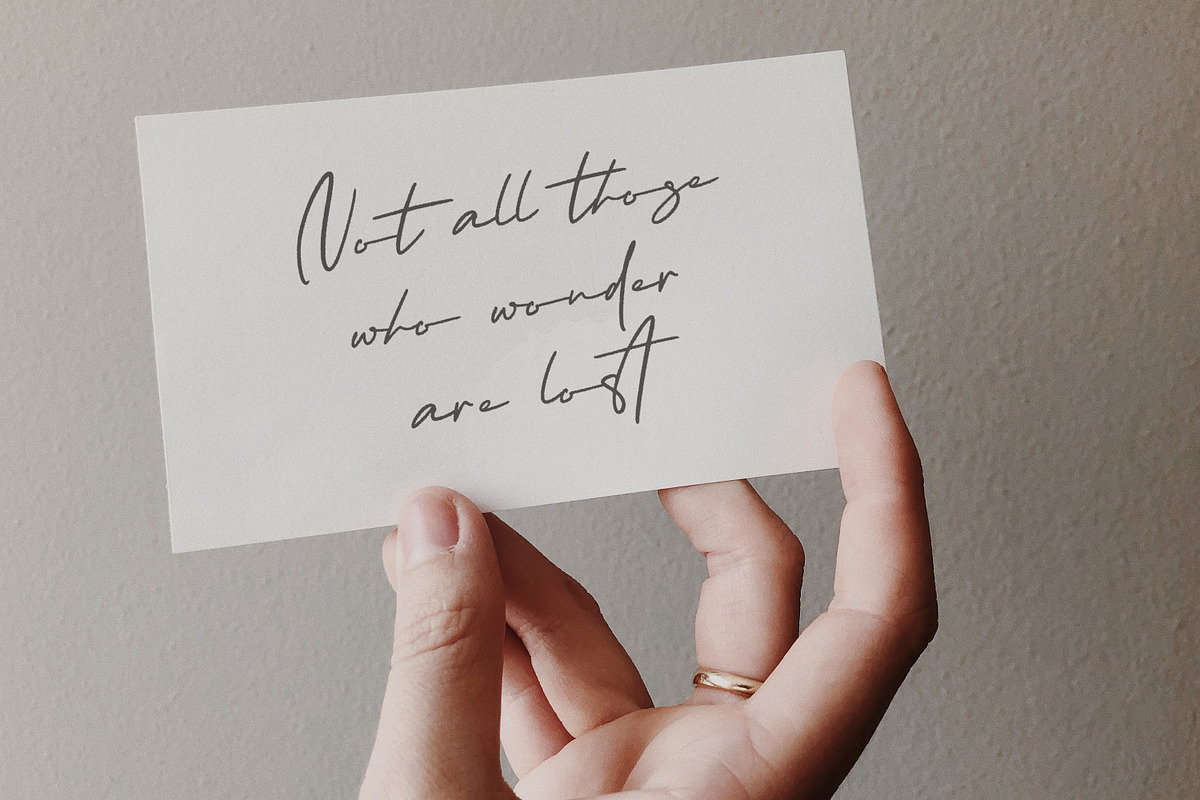 Not all those
who wonder
are lost